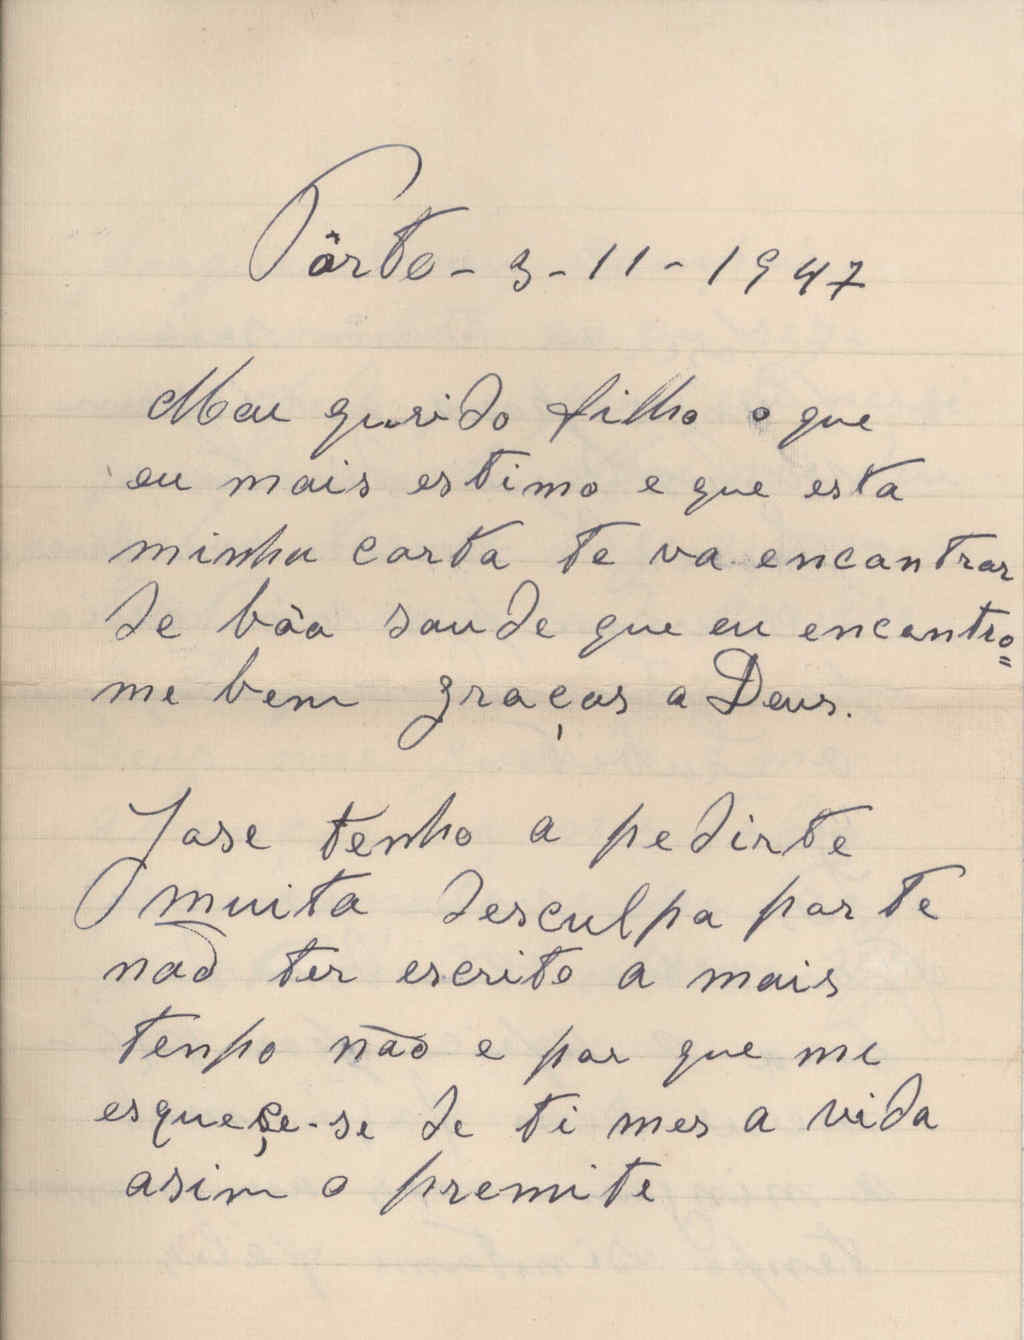 Pôrto - 3 - 11 - 1947
Meu qurido filho o que
eu mais estimo e que esta
minha carta te va encontrar
de bôa saude que eu encontro=
me bem graças a Deus.
Jose tenho a pedirte
muita desculpa por te
não ter escrito a mais
tenpo não e por que me
esqueçe-se de ti mes a vida
asim o premite